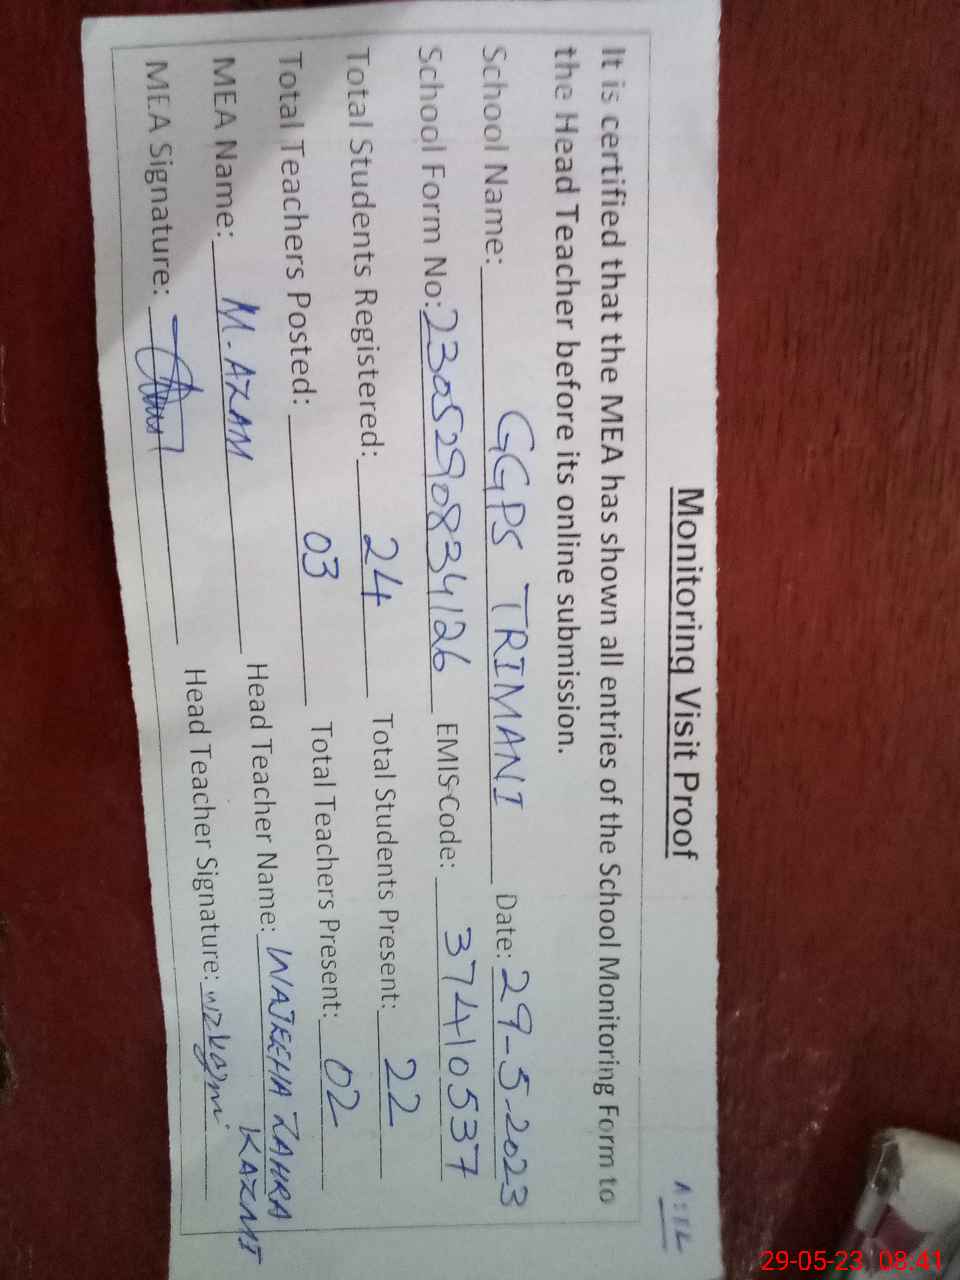 Monitoring Visit Proof
It is certified that the MEA has shown all entries of the School Monitoring Form to
the Head Teacher before its online submission.
School Name: GGPS TRIMANI Date: 29-5-2023
School Form No: 2305290834126 EMIS Code: 37410537
Total Students Registered: 24 Total Students Present: 22
Total Teachers Posted: 03 Total Teachers Present: 02
MEA Name: M. AZAM Head Teacher Name: WAJEEHA ZAHRA
KAZMI
MEA Signature: Head Teacher Signature: wzkazmi
29-05-23 08:41